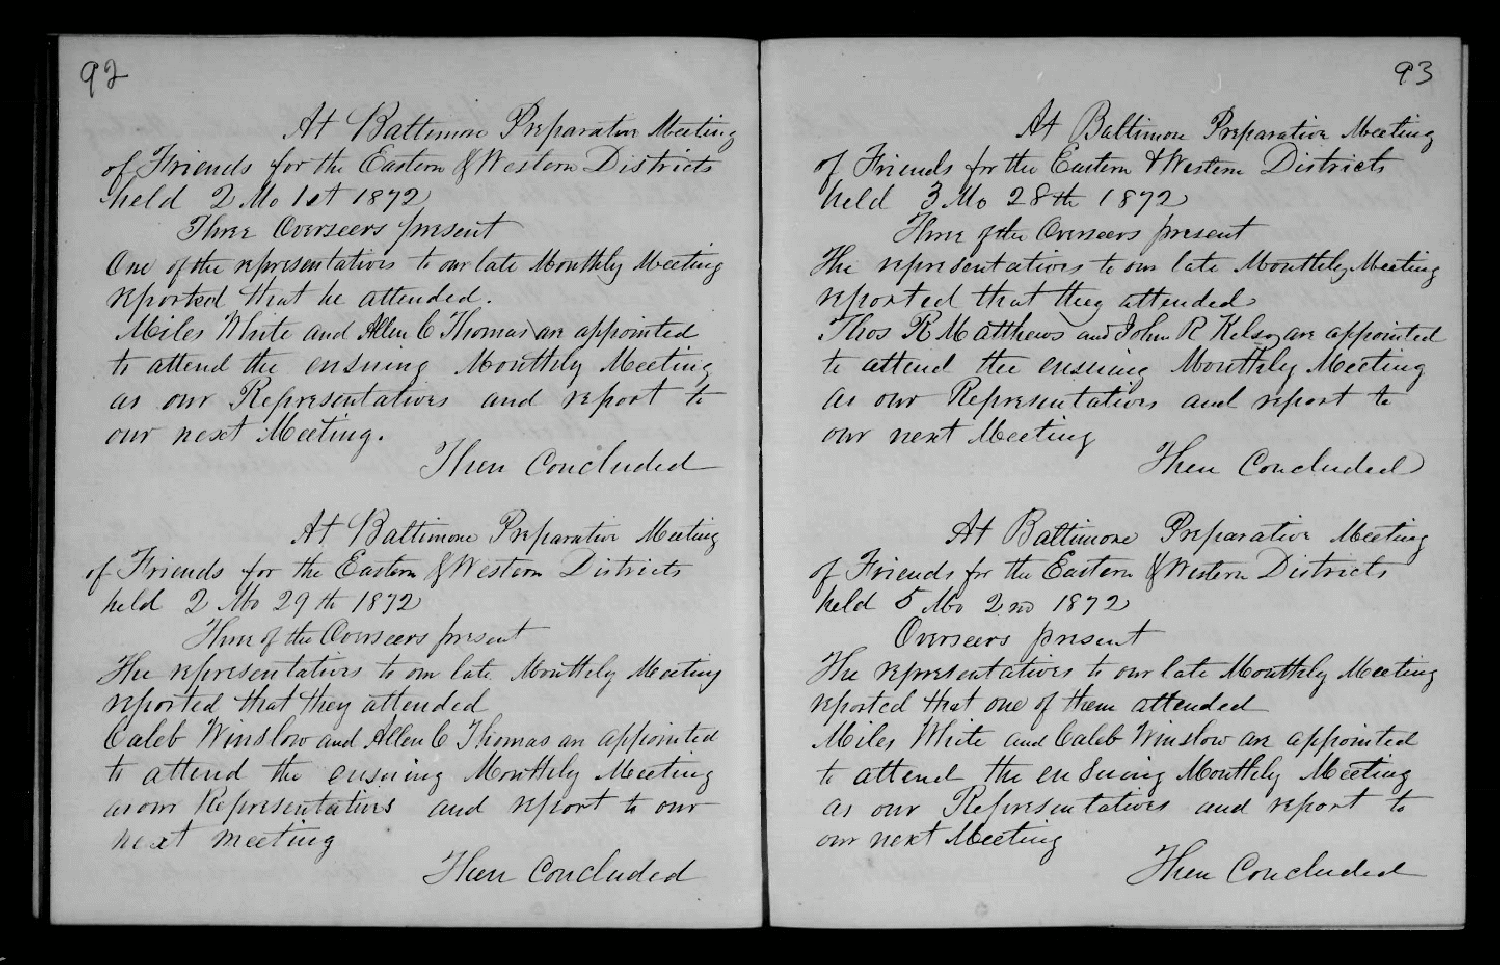 92
At Baltimore Preparative Meeting
of Friends for the Eastern & Western Districts
held 2 Mo 1st 1872
Three Overseers present
One of the representatives to our late Monthly Meeting
reported that he attended.
Miles White and Allen C Thomas are appointed
to attend the ensuing Monthly Meeting
as our Representatives and report to
our next Meeting.
Then Concluded
At Baltimore Preparative Meeting
of Friends for the Eastern & Western Districts
held 2 Mo 29th 1872
Three of the Overseers present
The representatives to our late Monthly Meeting
reported that they attended
Caleb Winslow and Allen C Thomas are appointed
to attend the ensuing Monthly Meeting
as our Representatives and report to our
next meeting
Then Concluded
93
At Baltimore Preparative Meeting
of Friends for the Eastern & Western Districts
held 3 Mo 28th 1872
Three of the Overseers present
The representatives to our late Monthly Meeting
reported that they attended
Thos R Matthews and John R Kelso are appointed
to attend the ensuing Monthly Meeting
as our Representatives and report to
our next Meeting
Then Concluded
At Baltimore Preparative Meeting
of Friends for the Eastern & Western Districts
held 5 Mo 2nd 1872
Overseers present
The representatives to our late Monthly Meeting
reported that one of them attended
Miles White and Caleb Winslow are appointed
to attend the ensuing Monthly Meeting
as our Representatives and report to
our next Meeting
Then Concluded